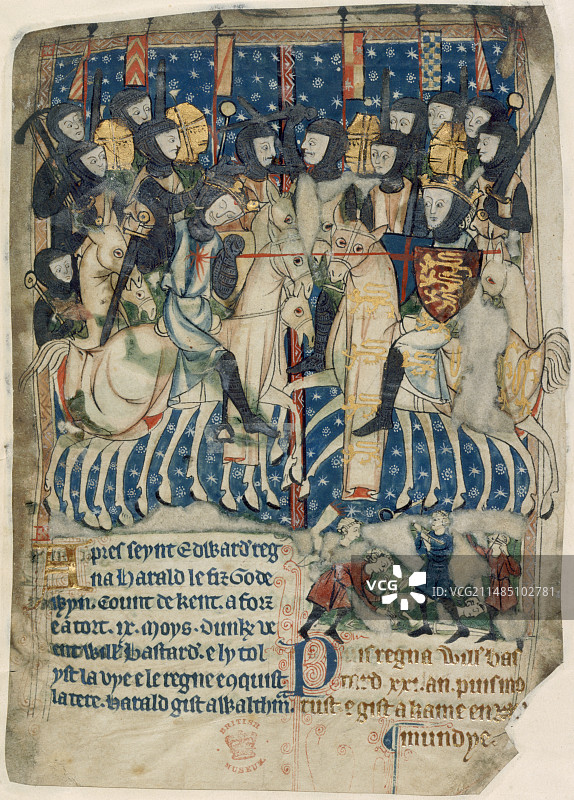 Apres seynt Edward reg
na Harald le fiz Gode
wyn. Count de kent. a forz
e a tort. ix. moys. Dunk; ve
ent Will Bastard. e ly tol
yst la vye e le regne conquist
la tere. Harald gist a Waltham.
Puis regna Will bas
tard xxi. an. puis mo
rust e gist a kame en
mundye
BRITISH
MUSEUM
VCG
VCG211485102781